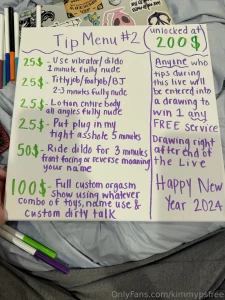 Tip Menu #2
25$ - Use vibrator/dildo
1 minute fully nude
25$ - Tittyjob/footjob/BJ
2-3 minutes fully nude
25$ - Lotion entire body
all angles fully nude
25$ - Put plug in my
tight asshole 5 minutes
50$ - Ride dildo for 3 minutes
front facing or reverse moaning
your name
100$ - Full custom orgasm
show using whatever
combo of toys, name use &
custom dirty talk
unlocked at
200$
Anyone who
tips during
this live will
be entered into
a drawing to
win 1 any
FREE Service
Drawing right
after end of
the Live
Happy New
Year 2024
OnlyFans.com/kimmypsfree